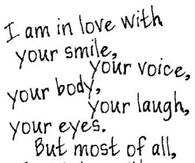 I am in love with
your smile,
your voice,
your body,
your laugh,
your eyes.
But most of all,